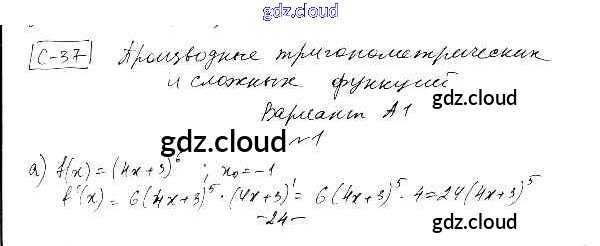 gdz.cloud
С-37 Производные тригонометрических
и сложных функций
gdz.cloud
Вариант А1
gdz.cloud
№1
а) f(x) = (4x+3)⁶ ; x₀ = -1
gdz.cloud
f'(x) = 6(4x+3)⁵ · (4x+3)' = 6(4x+3)⁵ · 4 = 24(4x+3)⁵
-24-
gdz.cloud